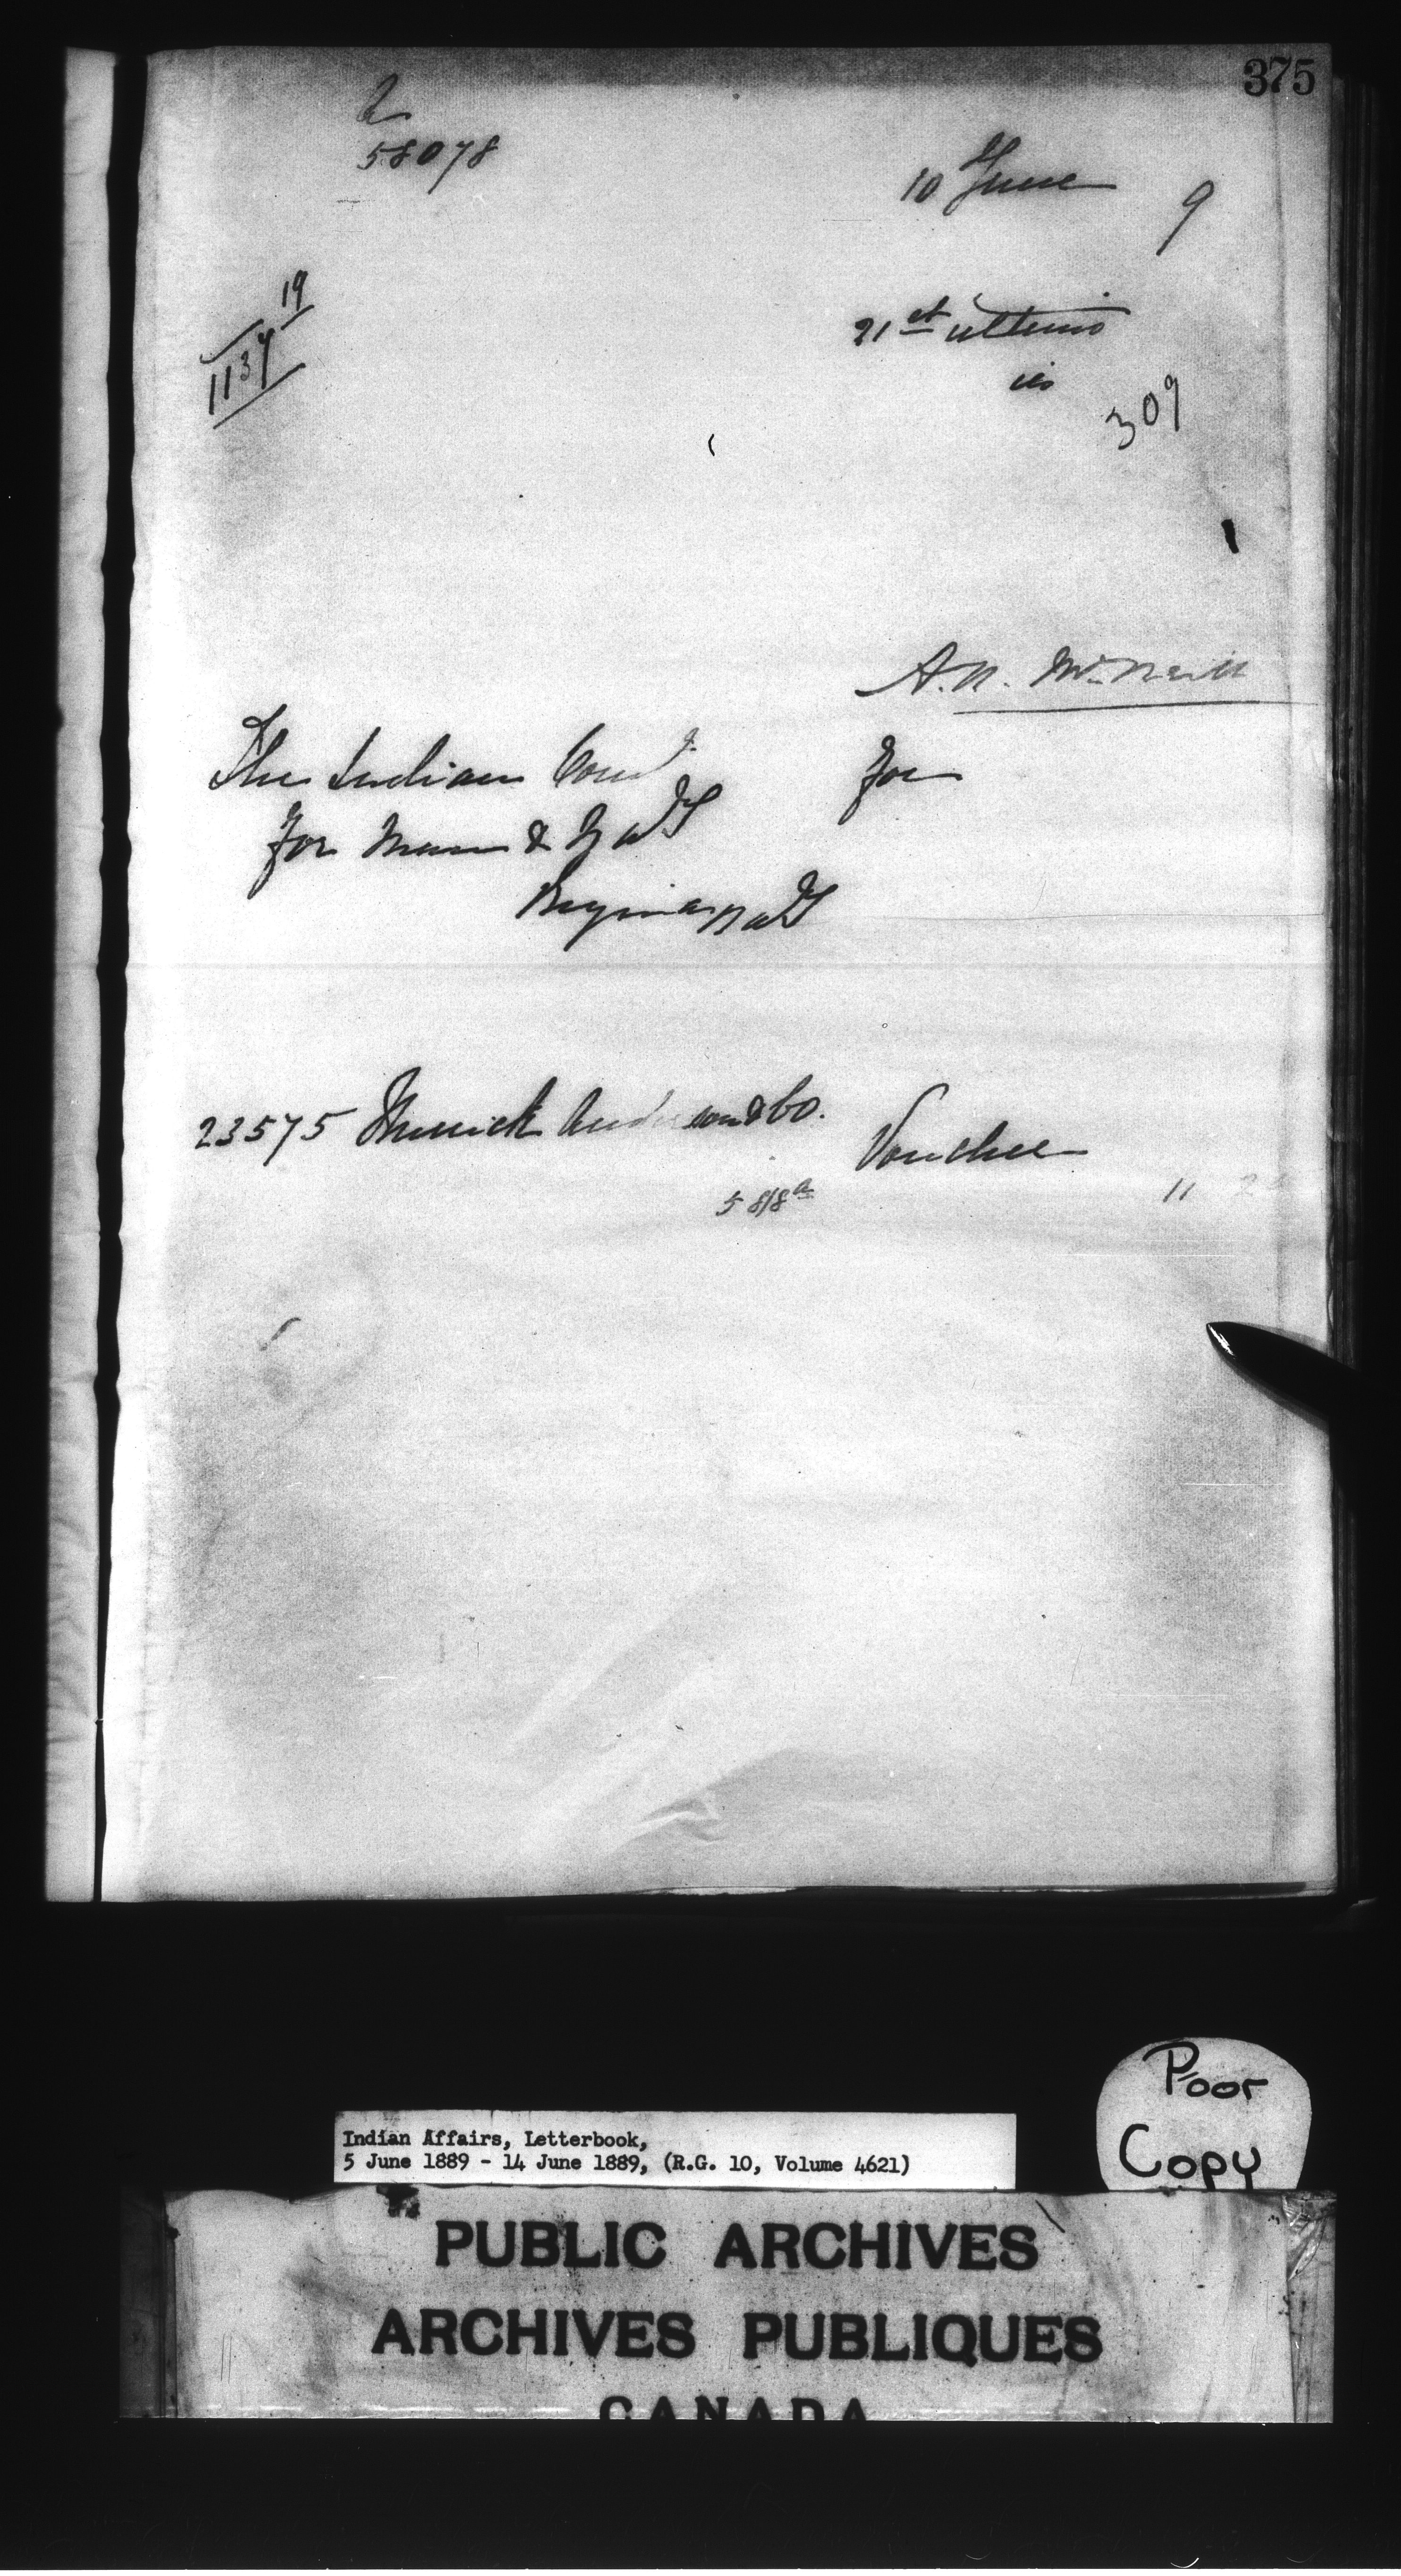 375
58078
10 June 9
19
1137
21st ultimo
is
309
A.N. McNeill
The Indian Comr for
for Man & N.W.T
Regina N.W.T
23575 Merrick Anderson & Co.
Voucher
5 818a
11
Poor
Copy
Indian Affairs, Letterbook,
5 June 1889 - 14 June 1889, (R.G. 10, Volume 4621)
PUBLIC ARCHIVES
ARCHIVES PUBLIQUES
CANADA